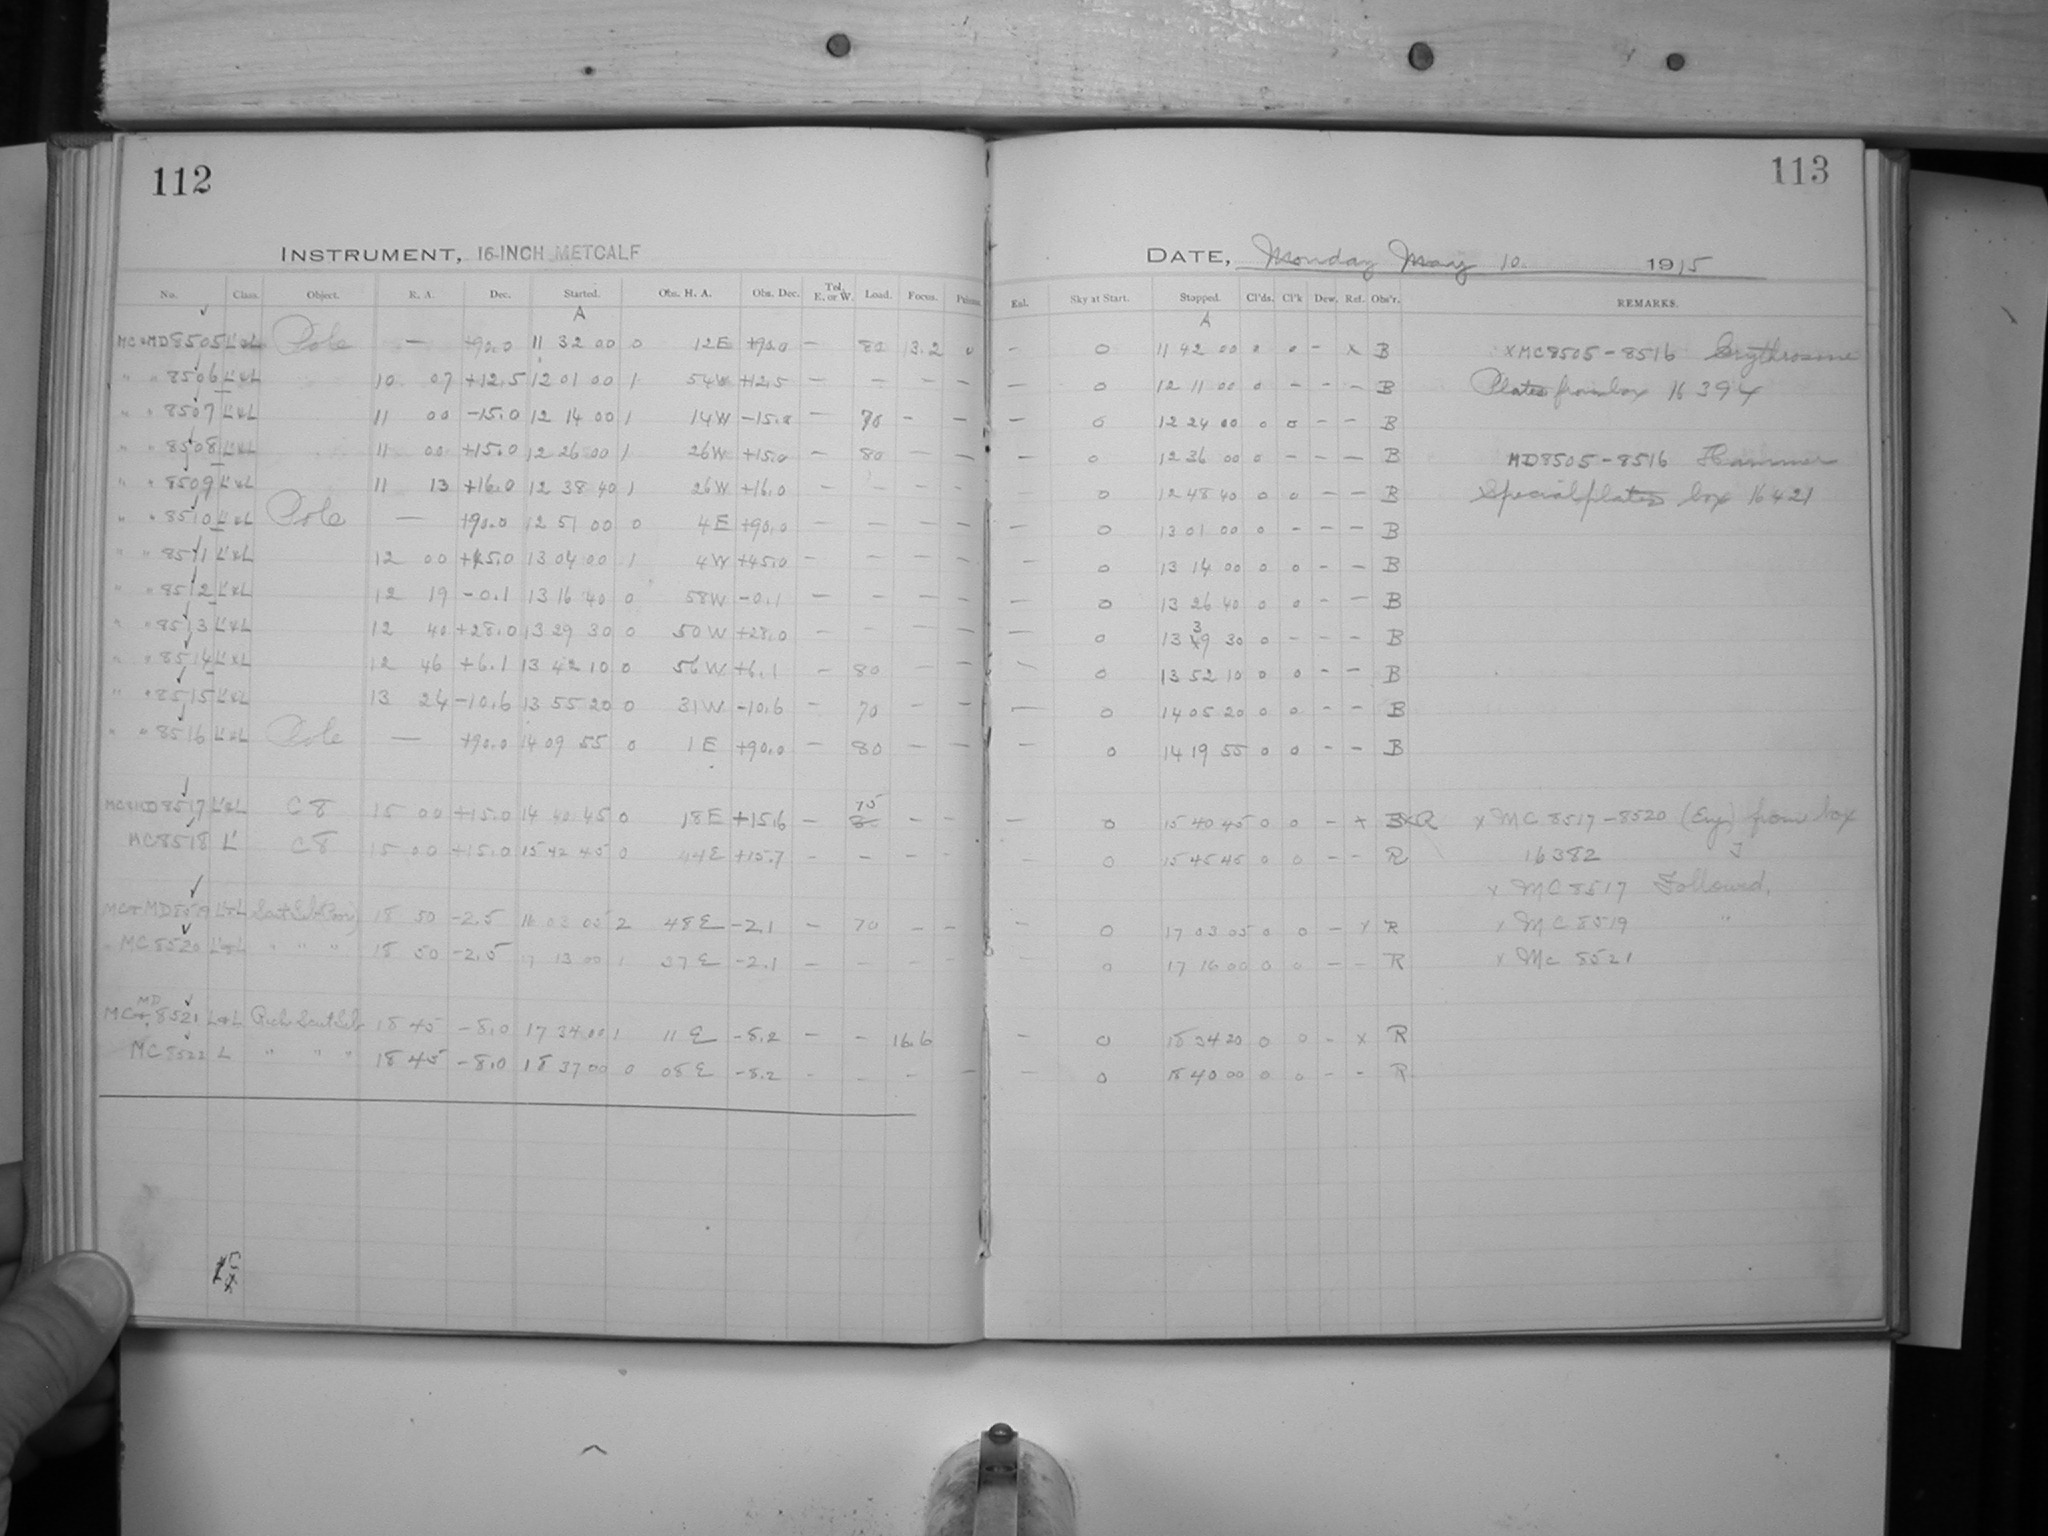 112
INSTRUMENT, 16-INCH METCALF
No. Class. Object. R. A. Dec. Started. Obs. H. A. Obs. Dec. Tel. E. or W. Load. Focus.
A
MC & MD 8505 L'&L Pole — +90.0 11 32 00 0 12E +90.0 — 80 13.2 0
" " 8506 L'&L 10 07 +12.5 12 01 00 1 54W +12.5 — — — —
" " 8507 L'&L 11 00 -15.0 12 14 00 1 14W -15.8 — 70 — —
" " 8508 L'&L 11 00 +15.0 12 26 00 1 26W +15.0 — 80 — —
" " 8509 L'&L 11 13 +16.0 12 38 40 1 26W +16.0 — — — —
" " 8510 L'&L Pole — +90.0 12 51 00 0 4E +90.0 — — — —
" " 8511 L'&L 12 00 +45.0 13 04 00 1 4W +45.0 — — — —
" " 8512 L'&L 12 19 -0.1 13 16 40 0 58W -0.1 — — — —
" " 8513 L'&L 12 40 +28.0 13 29 30 0 50W +28.0 — — — —
" " 8514 L'&L 12 46 +6.1 13 42 10 0 56W +6.1 — 80 — —
" " 8515 L'&L 13 24 -10.6 13 55 20 0 31W -10.6 — 70 — —
" " 8516 L'&L Pole — +90.0 14 09 55 0 1E +90.0 — 80 — —
75
MC & MD 8517 L'&L C8 15 00 +15.0 14 40 45 0 18E +15.6 — 80 — —
MC 8518 L' C8 15 00 +15.0 15 42 45 0 44E +15.7 — — — —
MC & MD 8519 L'&L 18 50 -2.5 16 03 05 2 48E -2.1 — 70 — —
MC 8520 L'&L " " " 18 50 -2.5 17 13 00 1 37E -2.1 — — — —
MD
MC & 8521 L&L 18 45 -8.0 17 34 00 1 11E -8.2 — — 16.6
MC 8522 L " " " 18 45 -8.0 18 37 00 0 08E -8.2 — — — —
113
DATE, Monday May 10. 1915
Ext. Sky at Start. Stopped. Cl'ds. Cl'k Dew. Ref. Obs'r. REMARKS.
A
— 0 11 42 00 0 0 — x B x MC 8505-8516 Erythrosine
— 0 12 11 00 0 — — — B Plates from box 16394
— 0 12 24 00 0 0 — — B
— 0 12 36 00 0 — — — B MD 8505-8516 Hammer
— 0 12 48 40 0 0 — — B Special plates box 16421
— 0 13 01 00 0 — — — B
— 0 13 14 00 0 0 — — B
— 0 13 26 40 0 0 — — B
3
— 0 13 49 30 0 — — — B
— 0 13 52 10 0 0 — — B
— 0 14 05 20 0 0 — — B
— 0 14 19 55 0 0 — — B
0 15 40 45 0 0 — x B&R x MC 8517-8520 (Ery) from box
0 15 45 45 0 0 — — R 16382
x MC 8517 Followed.
— 0 17 03 05 0 0 — x R x MC 8519 "
— 0 17 16 00 0 0 — — R x MC 8521
— 0 18 34 20 0 0 — x R
— 0 18 40 00 0 0 — — R